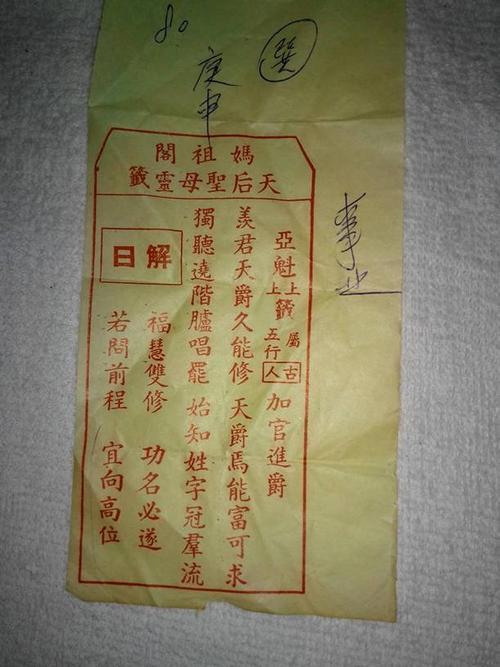 80
庚申
媽祖閣
天后聖母靈籤
亞魁 上上籤 屬五行 古人 加官進爵
羨君天爵久能修 天爵焉能富可求
獨聽遶階臚唱罷 始知姓字冠羣流
解曰
福慧雙修 功名必遂
若問前程 宜向高位
事业